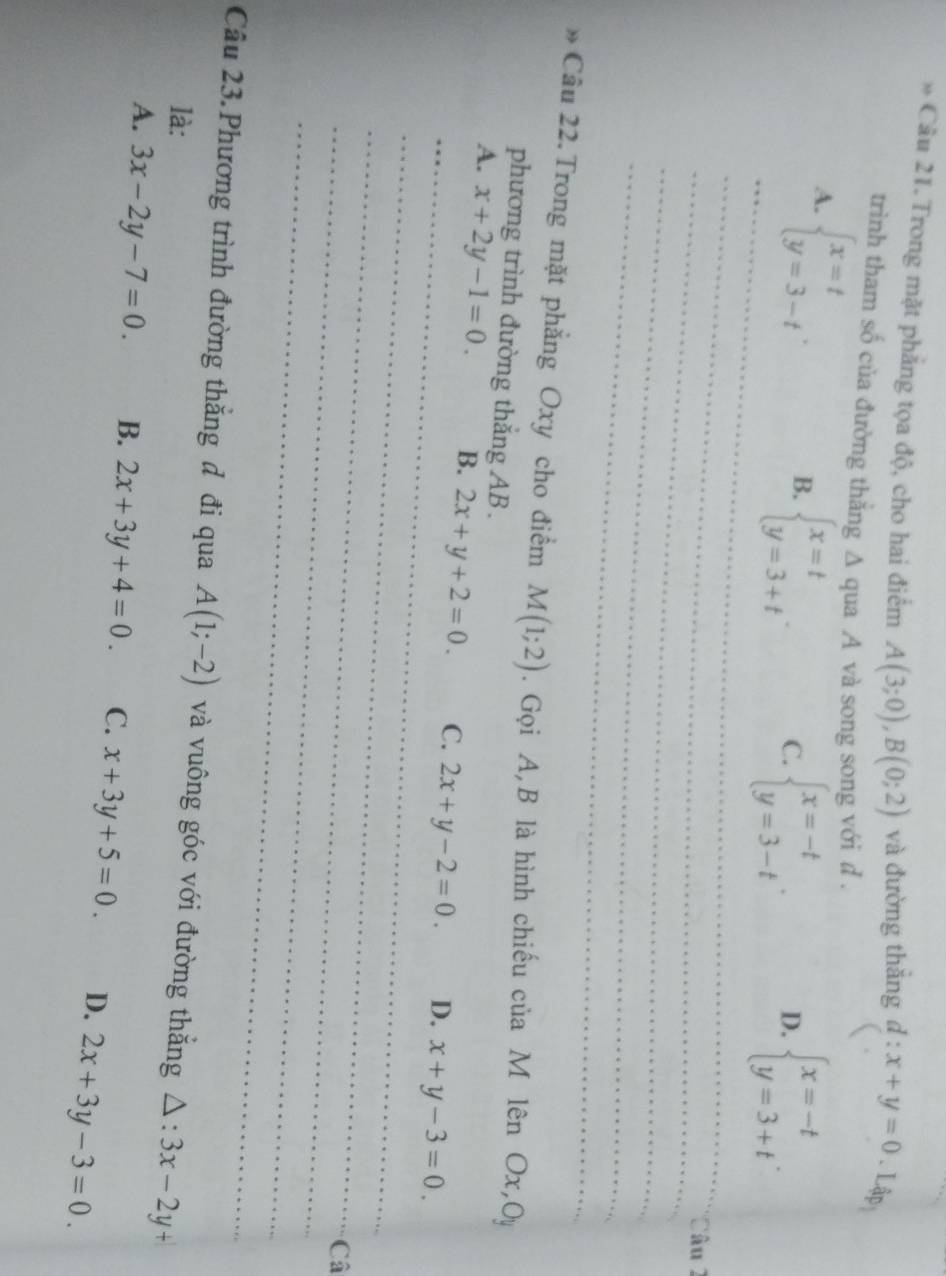 » Câu 21. Trong mặt phẳng tọa độ, cho hai điểm A(3;0), B(0;2) và đường thẳng d : x + y = 0. Lập
trình tham số của đường thẳng Δ qua A và song song với d.
A. { x = t y = 3 - t . B. { x = t y = 3 + t . C. { x = -t y = 3 - t . D. { x = -t y = 3 + t .
Câu 2
» Câu 22. Trong mặt phẳng Oxy cho điểm M(1;2). Gọi A, B là hình chiếu của M lên Ox, Oy
phương trình đường thẳng AB.
A. x + 2y - 1 = 0. B. 2x + y + 2 = 0. C. 2x + y - 2 = 0. D. x + y - 3 = 0.
Câ
Câu 23. Phương trình đường thẳng d đi qua A(1;-2) và vuông góc với đường thẳng Δ : 3x - 2y +
là:
A. 3x - 2y - 7 = 0. B. 2x + 3y + 4 = 0. C. x + 3y + 5 = 0. D. 2x + 3y - 3 = 0.